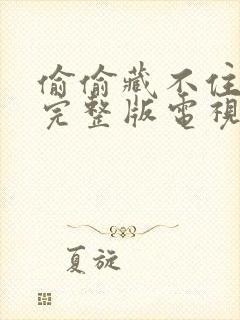 偷偷藏不住
完整版電視
夏旋